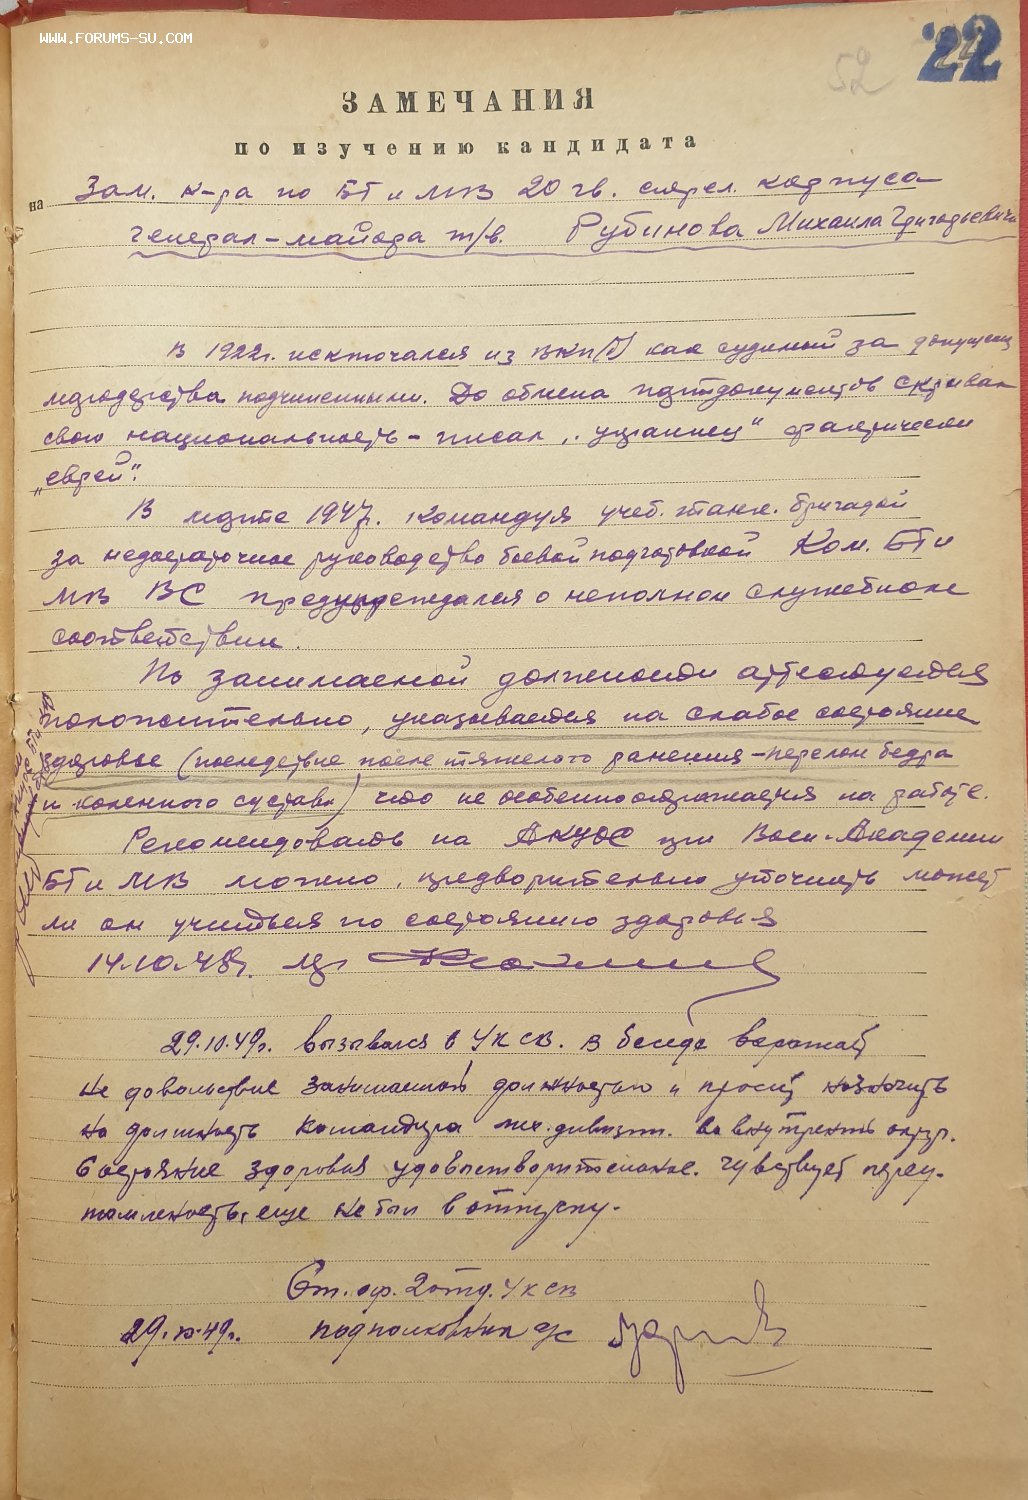 WWW.FORUMS-SU.COM
52
22
ЗАМЕЧАНИЯ
по изучению кандидата
на Зам. к-ра по БТ и МВ 20 гв. стрел. корпуса
генерал-майора т/в. Рубинова Михаила Григорьевича
В 1922г. исключался из ВКП(б) как судимый за допущен.
мародерства подчиненными. До обмена партдокументов скрывал
свою национальность - писал „украинец“ фактически
„еврей“.
В марте 1947г. командуя учеб. танк. бригадой
за недостаточное руководство боевой подготовкой Ком. БТ и
МВ ВС предупреждался о неполном служебном
соответствии.
По занимаемой должности аттестуется
положительно, указывается на слабое состояние
здоровье (последствие после тяжелого ранения - перелом бедра
и коленного сустава) что не особенно отражается на работе.
Рекомендовать на АКУОС при Воен. Академии
БТ и МВ можно, предворительно уточнить может
ли он учиться по состоянию здоровья
14.10.48г. м-р
29.10.49г. вызывался в УК СВ. В беседе выражает
не довольствие занимаемой должностью и просит назначить
на должность командира мех. дивизии. во внутренн. округ.
Состояние здоровья удовлетворительное. Чувствует переу-
томленность, еще не был в отпуску.
Ст. оф. 2 отд. УК СВ
29.10.49г. подполковник т/с